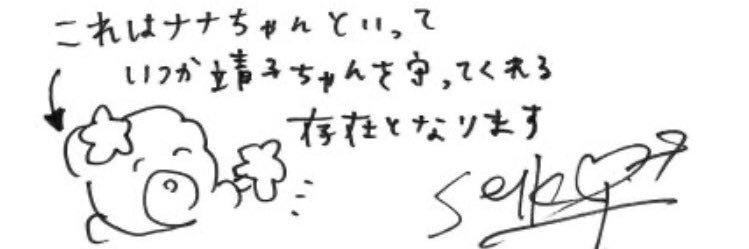 これはナナちゃんといって
いつか靖子ちゃんを守ってくれる
存在となります